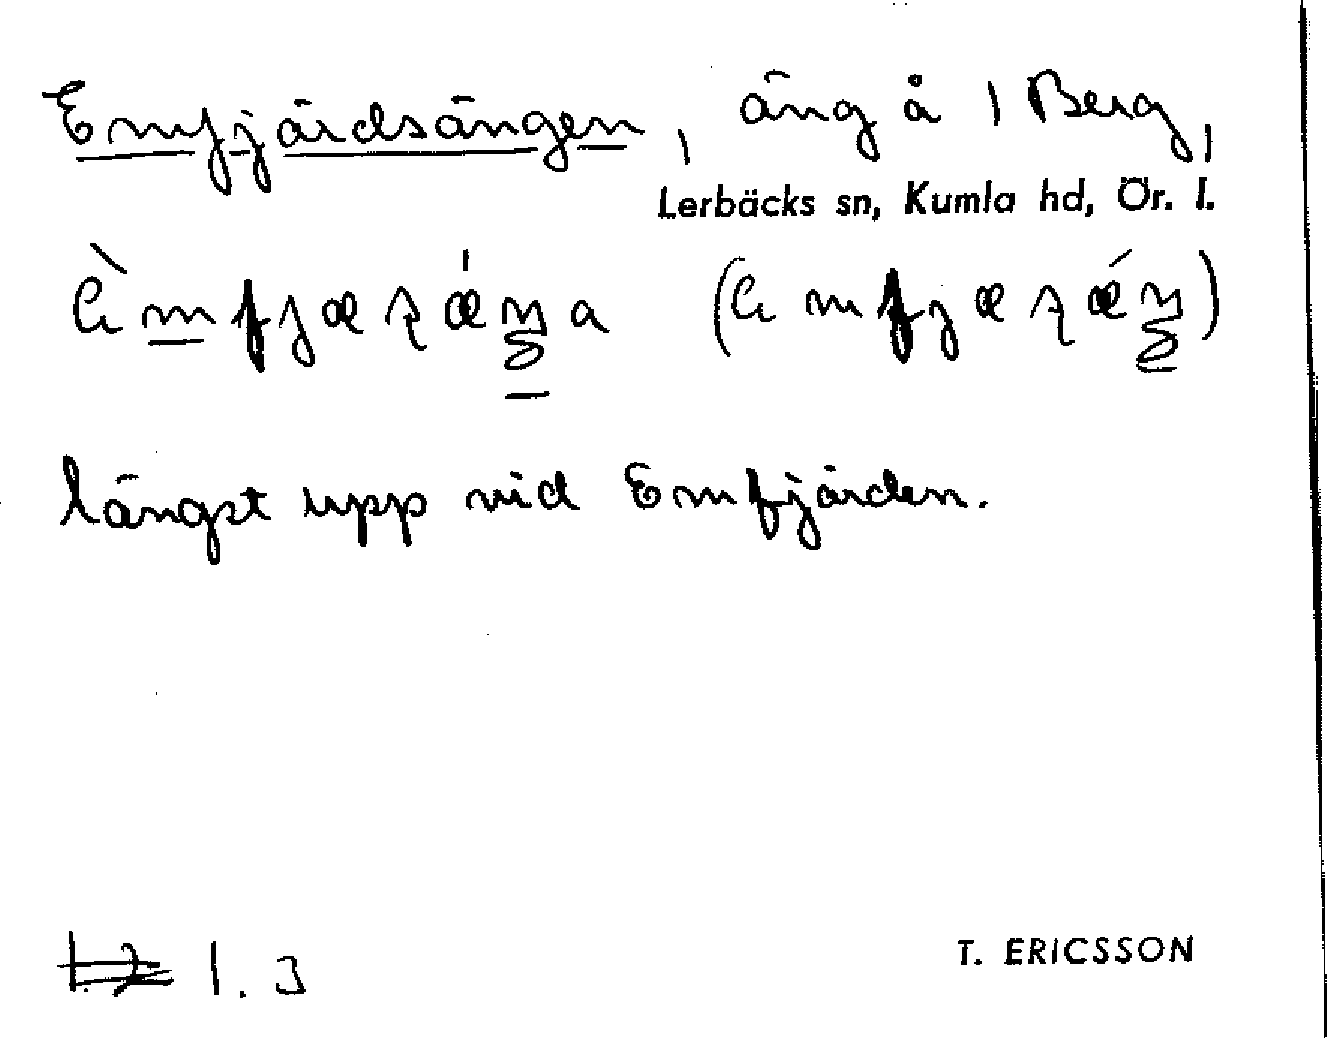 Emfjärdsängen, äng å 1 Berg,
Lerbäcks sn, Kumla hd, Ör. l.
längst upp vid Emfjärden.
1.3
T. ERICSSON